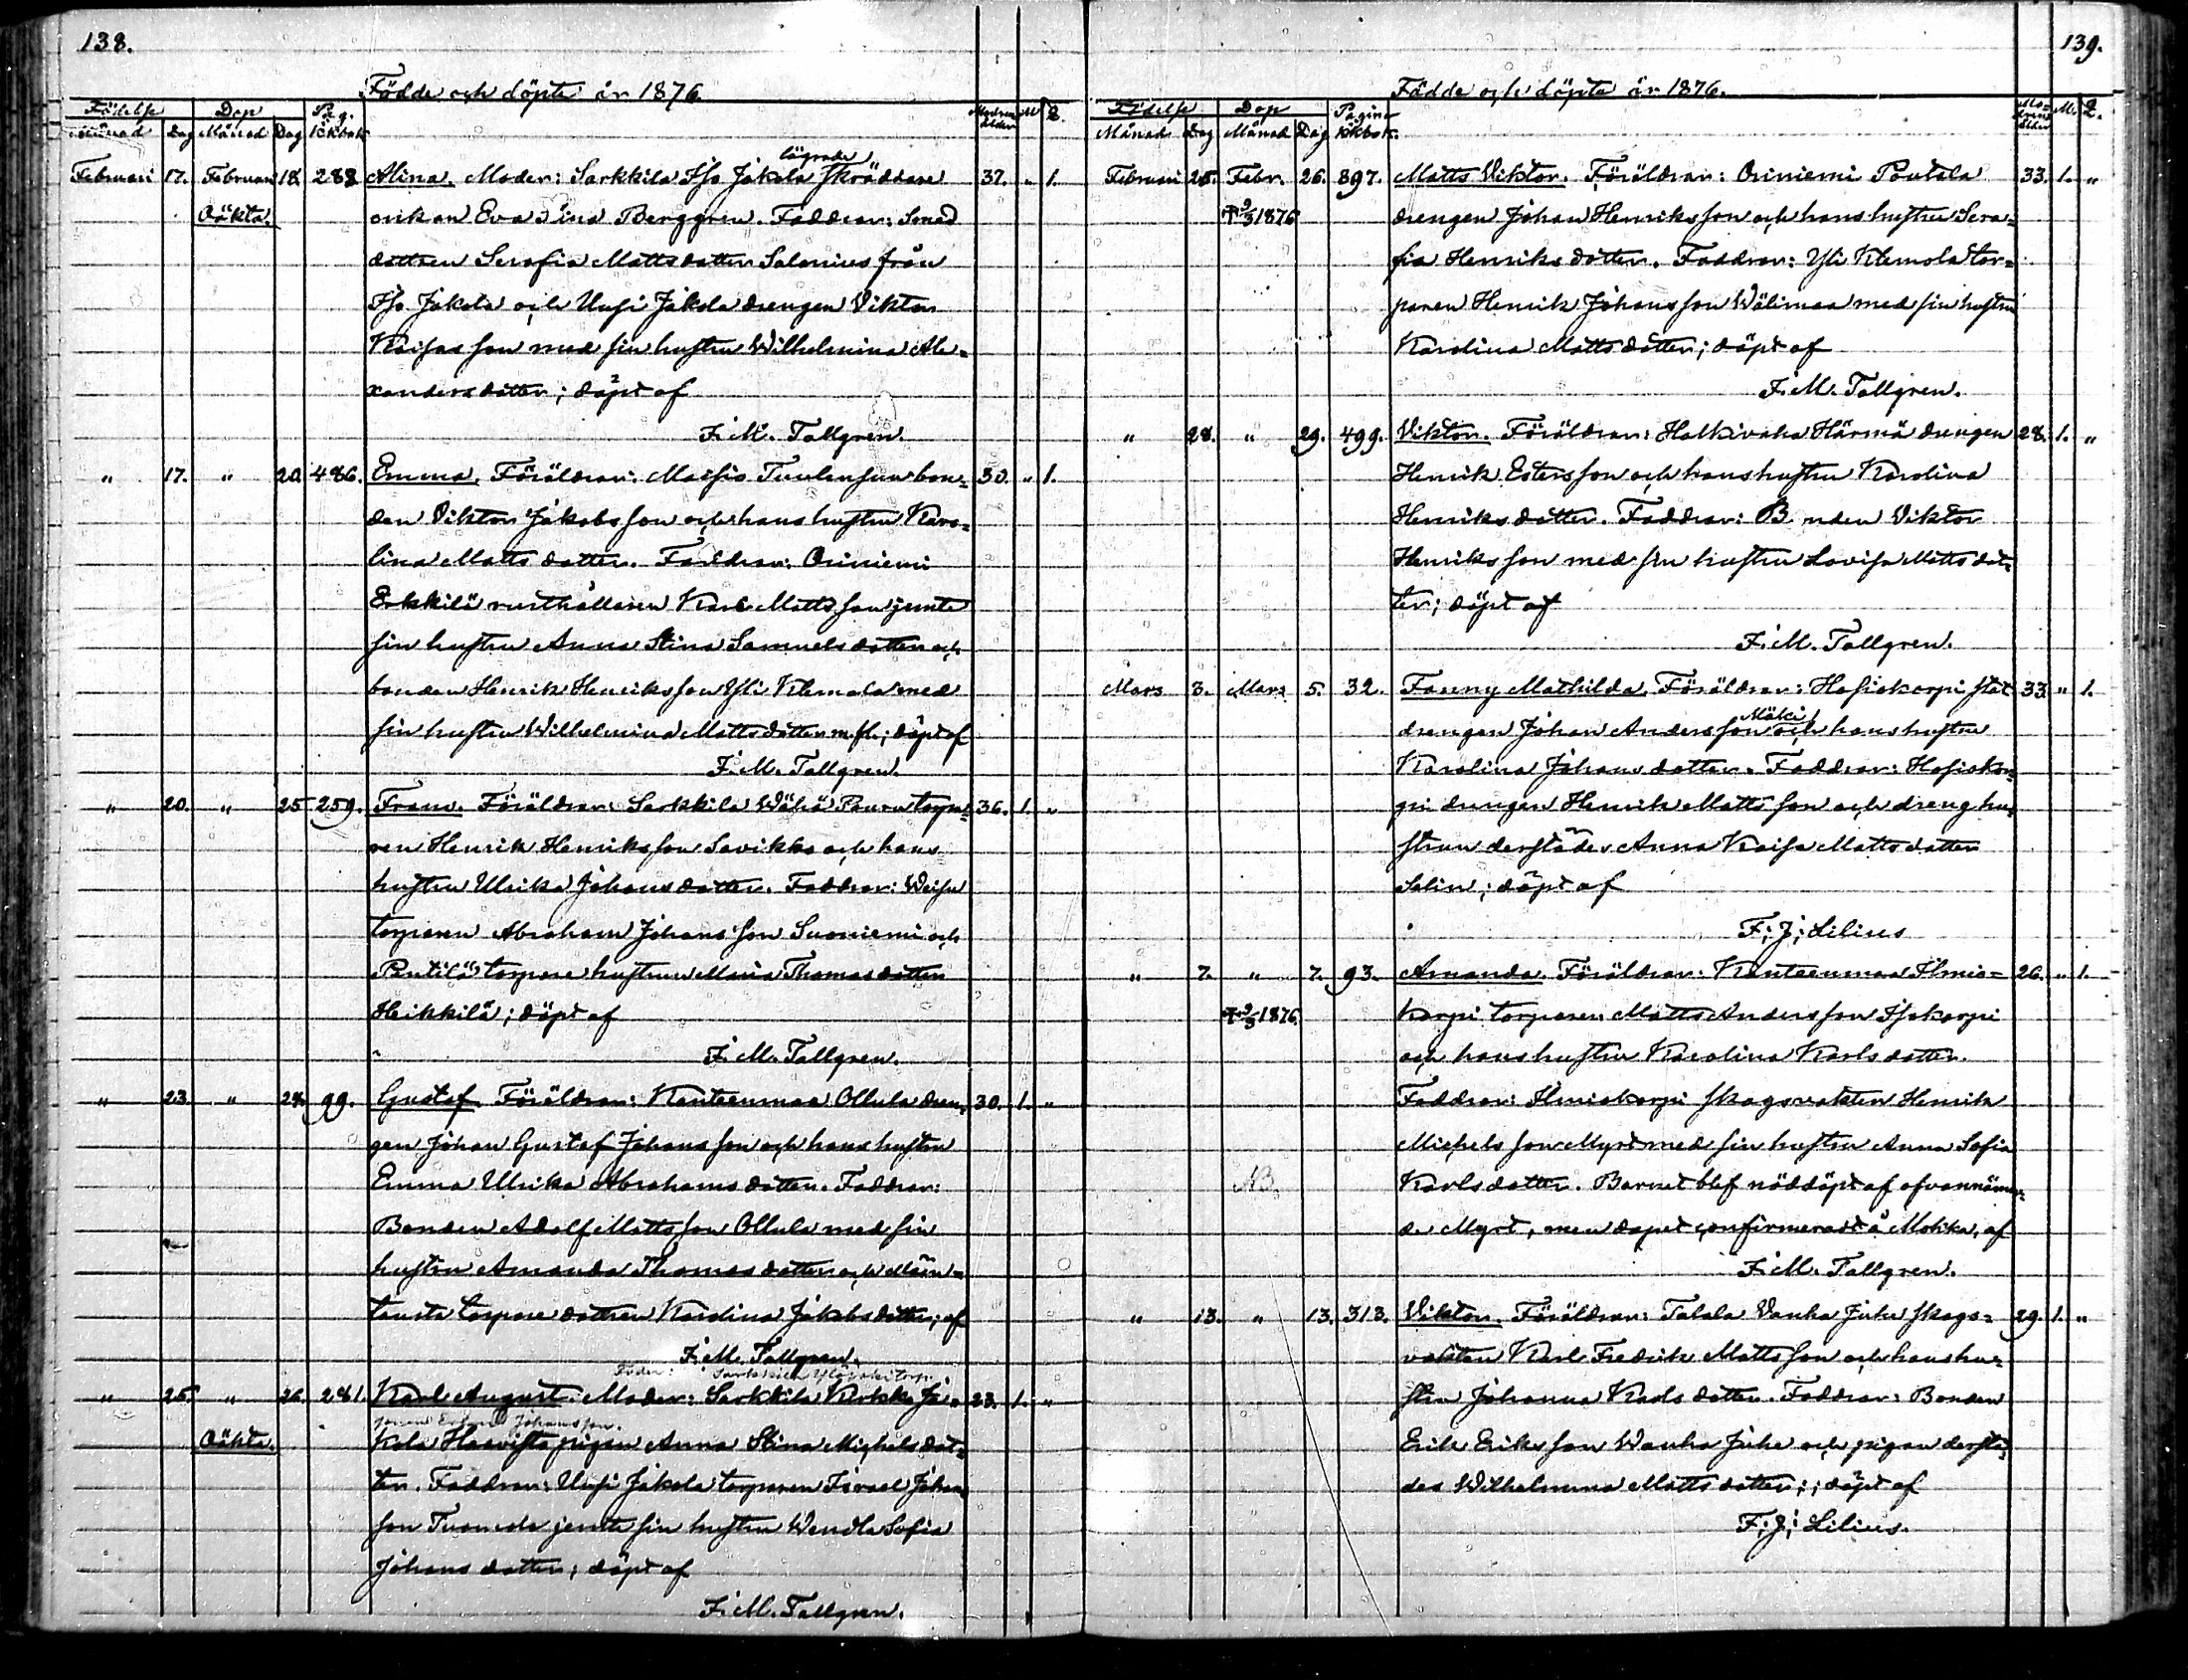 138.
Födde och döpte år 1876.
Födelse Dop Pag. Modrens ålder M Q.
Månad Dag Månad Dag kkbok
lägrade
Februari 17. Februari 18. 288 Alina. Moder: Sarkkila Iso Jakola skräddare 37. " 1.
Oäkta. enkan Eva Stina Berggren. Faddrar: Smed
dottren Serafia Mattsdotter Salonius från
Iso Jakola och Uusi Jakola drengen Viktor
Kaisasson med sin hustru Wilhelmina Ale=
xandersdotter; döpt af
F. M. Tallgren.
" 17. " 20. 486. Emma. Föräldrar: Maisio Tuulensuu bon= 30. " 1.
den Viktor Jakobsson och hans hustru Karo=
lina Mattsdotter. Faddrar: Oriniemi
Erkkilä rusthållaren Karl Mattsson jemte
sin hustru Anna Stina Samuelsdotter och
bonden Henrik Henriksson Yli Klemola med
sin hustru Wilhelmina Mattsdotter m. fl.; döpt af
F. M. Tallgren.
" 20. " 25 259. Frans. Föräldrar: Sarkkila Wähä Pouru torpa= 36. 1. "
ren Henrik Henriksson Savikko och hans
hustru Ulrika Johansdotter. Faddrar: Weisu
torparen Abraham Johansson Suoniemi och
Pentilä torpare hustrun Maria Thomasdotter
Heikkilä; döpt af
F. M. Tallgren.
" 23. " 24. 99. Gustaf. Föräldrar: Kanteenmaa Ollula dren= 30. 1. "
gen Johan Gustaf Johansson och hans hustru
Emma Ulrika Abrahamsdotter. Faddrar:
Bonden Adolf Mattsson Ollula med sin
hustru Amanda Thomasdotter och Män=
tausta torpare dottren Karolina Jakobsdotter; af
F. M. Tallgren.
Fader: Sarkkila torp
" 25. " 26. 281. Karl August. Moder: Sarkkila Kokko Ja= 23. 1. "
Johansson.
Oäkta. kola Haavisto pigan Anna Stina Michelsdot=
ter. Faddrar: Uusi Jakola torparen Israel Johans
son Tuomola jemte sin hustru Wendla Sofia
Johansdotter; döpt af
F. M. Tallgren.
139.
Födde och döpte år 1876.
Födelse Dop Pagina Modrens ålder M. Q.
Månad Dag Månad Dag kkbok.
Februari 25. Febr. 26. 897. Matts Viktor. Föräldrar: Oriniemi Pentala 33. 1. "
† 9/3 1876 drengen Johan Henriksson och hans hustru Sera=
fia Henriksdotter. Faddrar: Yli Klemola tor=
paren Henrik Johansson Wälimaa med sin hustru
Karolina Mattsdotter; döpt af
F. M. Tallgren.
" 28. " 29. 499. Viktor. Föräldrar: Halkivaha Härmä drengen 28. 1. "
Henrik Estersson och hans hustru Karolina
Henriksdotter. Faddrar: B nden Viktor
Henriksson med sin hustru Lovisa Mattsdot=
ter; döpt af
F. M. Tallgren.
Mars 3. Mars 5. 32. Fanny Mathilda. Föräldrar: Hosiokorpi stat 33. " 1.
Mäki
drengen Johan Andersson och hans hustru
Karolina Johansdotter. Faddrar: Hosiokor=
pi drengen Henrik Mattsson och dreng hu=
strun derstädes Anna Kaisa Mattsdotter
Salin; döpt af
F; J; Lilius
" 7. " 7. 93. Amanda. Föräldrar: Kanteenmaa Ilmio= 26. " 1.
† 9/3 1876. korpi torparen Matts Andersson Isokorpi
och hans hustru Karolina Karlsdotter.
Faddrar: Ilmiokorpi skogsvakten Henrik
Michelsson Myrt med sin hustru Anna Sofia
NB. Karlsdotter. Barnet blef nöddöpt af ofvannämn=
de Myrt, men dopet confirmeradt å Mohka, af
F. M. Tallgren.
" 13. " 13. 313. Viktor. Föräldrar: Talala Vanha Juke skogs= 29. 1. "
vakten Karl Fredrik Mattsson och hans hu=
stru Johanna Karlsdotter. Faddrar: Bonden
Erik Eriksson Wanha Juke och pigan derstä=
des Wilhelmina Mattsdotter;; döpt af
F; J; Lilius.